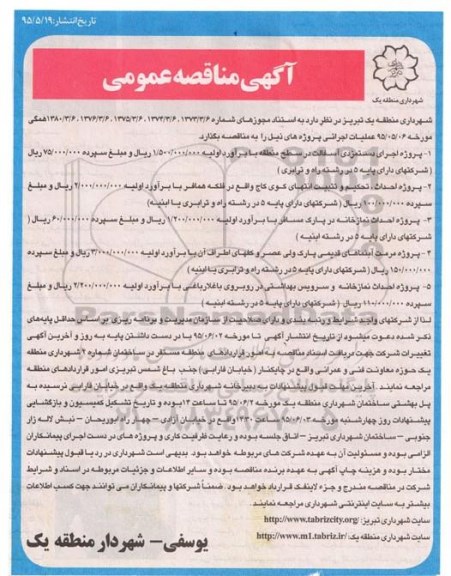 تاریخ انتشار: ۹۵/۵/۱۹
آگهی مناقصه عمومی
شهرداری منطقه یک
شهرداری منطقه یک تبریز در نظر دارد به استناد مجوزهای شماره ۱۳۷۳/۳/۶، ۱۳۷۴/۳/۶، ۱۳۷۵/۳/۶، ۱۳۷۶/۳/۶، ۱۳۸۰/۳/۶ همگی
مورخه ۹۵/۰۵/۰۶ عملیات اجرائی پروژه های ذیل را به مناقصه بگذارد.
۱- پروژه اجرای دستمزدی آسفالت در سطح منطقه با برآورد اولیه ۱/۵۰۰/۰۰۰/۰۰۰ ریال و مبلغ سپرده ۷۵/۰۰۰/۰۰۰ ریال
(شرکتهای دارای پایه ۵ در رشته راه و ترابری)
۲- پروژه احداث، تحکیم و تثبیت انتهای کوی کاج واقع در فلکه همافر با برآورد اولیه ۲/۰۰۰/۰۰۰/۰۰۰ ریال و مبلغ
سپرده ۱۰۰/۰۰۰/۰۰۰ ریال (شرکتهای دارای پایه ۵ در رشته راه و ترابری یا ابنیه)
۳- پروژه احداث نمازخانه در پارک مسافر با برآورد اولیه ۱/۲۰۰/۰۰۰/۰۰۰ ریال و مبلغ سپرده ۶۰/۰۰۰/۰۰۰ ریال (
شرکتهای دارای پایه ۵ در رشته ابنیه)
۴- پروژه مرمت آبنماهای قدیمی پارک ولی عصر و کفهای اطراف آن با برآورد اولیه ۳/۰۰۰/۰۰۰/۰۰۰ ریال و مبلغ سپرده
۱۵۰/۰۰۰/۰۰۰ ریال (شرکتهای دارای پایه ۵ در رشته راه و ترابری یا ابنیه)
۵- پروژه احداث نمازخانه و سرویس بهداشتی در روبروی باغلارباغی با برآورد اولیه ۲/۲۰۰/۰۰۰/۰۰۰ ریال و مبلغ
سپرده ۱۱۰/۰۰۰/۰۰۰ ریال (شرکتهای دارای پایه ۵ در رشته ابنیه)
لذا از شرکتهای واجد شرایط و رتبه بندی و دارای صلاحیت از سازمان مدیریت و برنامه ریزی بر اساس حداقل پایه های
ذکر شده دعوت میشود از تاریخ انتشار آگهی تا مورخه ۹۵/۰۶/۰۲ با در دست داشتن پایه به روز و آخرین آگهی
تغییرات شرکت جهت دریافت اسناد مناقصه به امور قراردادهای منطقه مستقر در ساختمان شماره ۲ شهرداری منطقه
یک حوزه معاونت فنی و عمرانی واقع در چایکنار (خیابان فارابی) جنب باغ شمس تبریزی امور قراردادهای منطقه
مراجعه نمایند. آخرین مهلت قبول پیشنهادات به دبیرخانه شهرداری منطقه یک واقع در خیابان فارابی نرسیده به
پل بهشتی ساختمان شهرداری منطقه یک مورخه ۹۵/۰۶/۲ تا ساعت ۱۳ بوده و تاریخ تشکیل کمیسیون و بازگشایی
پیشنهادات روز چهارشنبه مورخه ۹۵/۰۶/۰۳ ساعت ۱۳۳۰ واقع در خیابان آزادی - چهار راه ابوریحان - نبش لاله زار
جنوبی - ساختمان شهرداری تبریز - اتاق جلسه بوده و رعایت ظرفیت کاری و پروژه های در دست اجرای پیمانکاران
الزامی بوده و مسئولیت آن به عهده شرکت های مربوطه خواهد بود. بدیهی است شهرداری در رد یا قبول پیشنهادات
مختار بوده و هزینه چاپ آگهی به عهده برنده مناقصه بوده و سایر اطلاعات و جزئیات مربوطه در اسناد و شرایط
شرکت در مناقصه مندرج و جزء لاینفک قرارداد خواهد بود. ضمناً شرکتها و پیمانکاران می توانند جهت کسب اطلاعات
بیشتر به سایت اینترنتی شهرداری مراجعه نمایند.
سایت شهرداری تبریز: http://www.tabrizcity.org/
سایت شهرداری منطقه یک: http://www.m1.tabriz.ir/
یوسفی - شهردار منطقه یک
ParsNamadData
۰۲۱-۸۸۳۴۹۶۷۰-۵